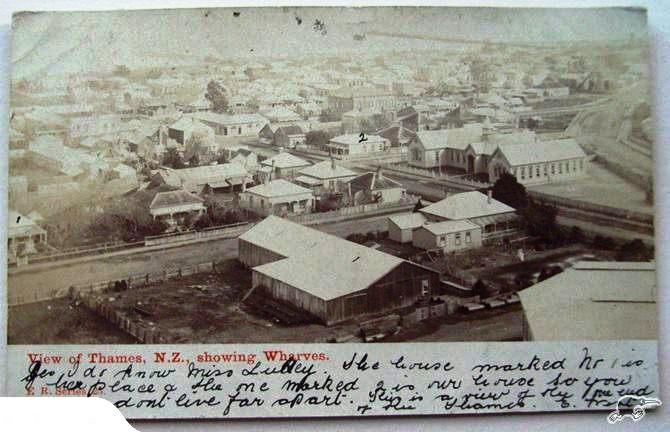 1
2
View of Thames, N.Z., showing Wharves.
Yes I do know Miss Lulley The house marked No 1 is
her place & the one marked 2 is our house so you
F. R. Series
dont live far apart. This is a view of the one end
of the Thames. E.